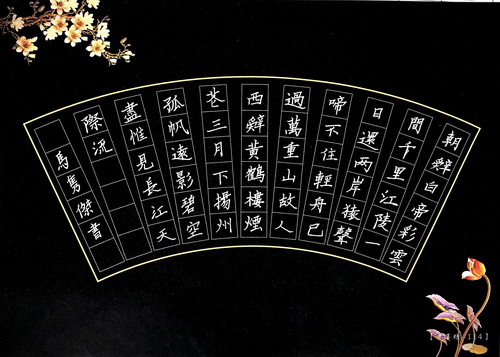 朝辤白帝彩雲
間千里江陵一
日還兩岸猿聲
啼不住輕舟已
過萬重山故人
西辤黄鶴樓煙
花三月下揚州
孤帆遠影碧空
盡惟見長江天
際流
馬雋傑書